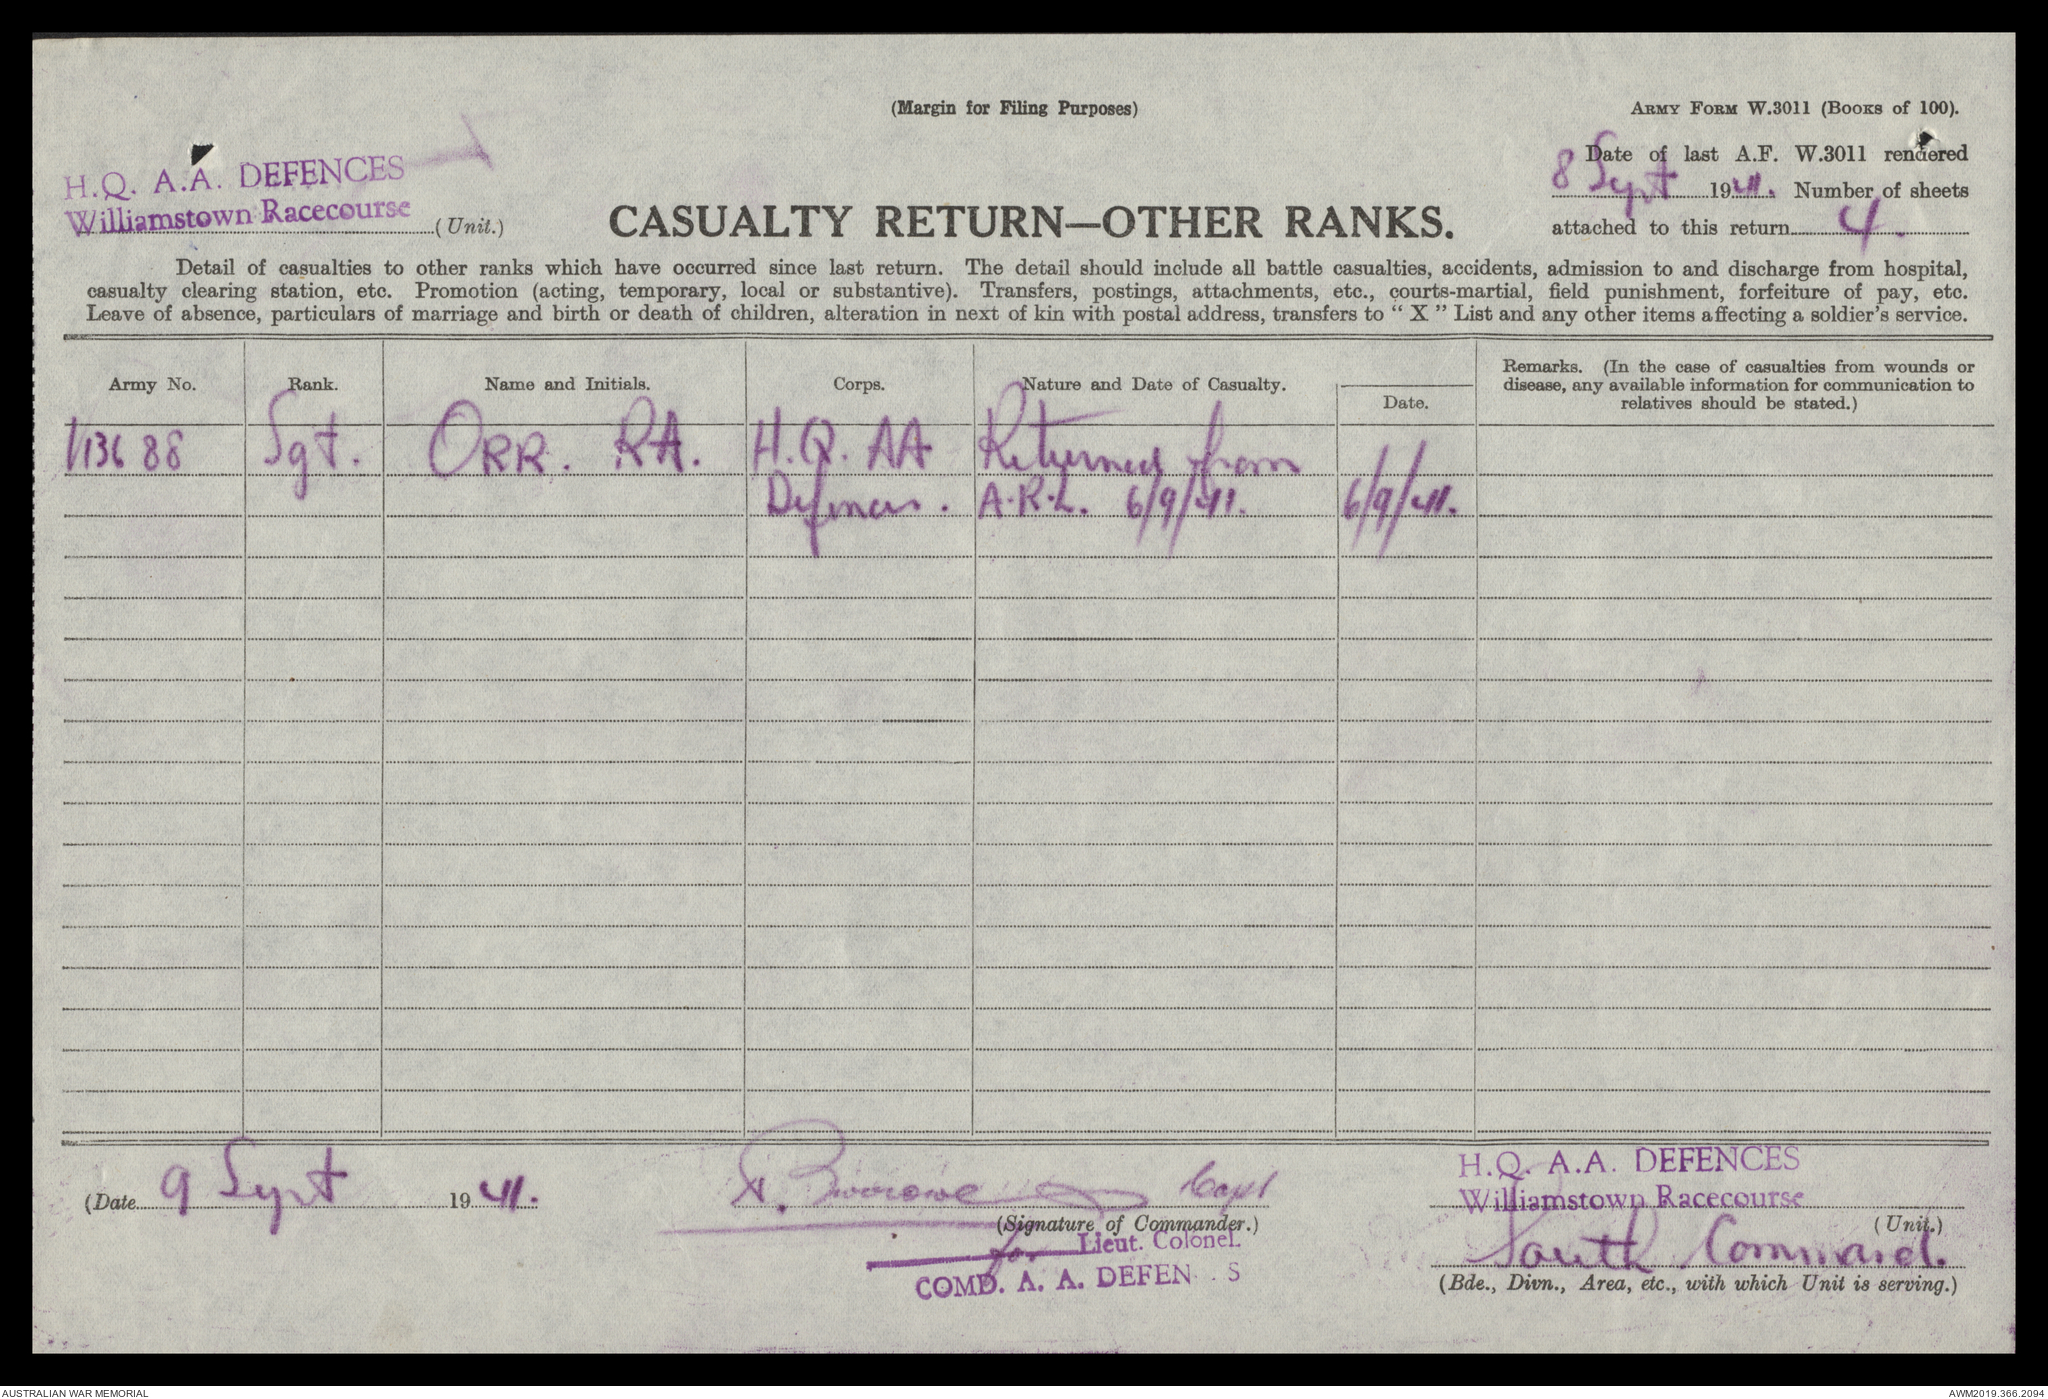 (Margin for Filing Purposes)
ARMY FORM W.3011 (BOOKS of 100).
H.Q. A.A. DEFENCES
Williamstown Racecourse (Unit.)
Date of last A.F. W.3011 rendered
8 Sept 1941. Number of sheets
attached to this return 4.
CASUALTY RETURN—OTHER RANKS.
Detail of casualties to other ranks which have occurred since last return. The detail should include all battle casualties, accidents, admission to and discharge from hospital,
casualty clearing station, etc. Promotion (acting, temporary, local or substantive). Transfers, postings, attachments, etc., courts-martial, field punishment, forfeiture of pay, etc.
Leave of absence, particulars of marriage and birth or death of children, alteration in next of kin with postal address, transfers to “ X ” List and any other items affecting a soldier’s service.
Army No. Rank. Name and Initials. Corps. Nature and Date of Casualty. Date.
Remarks. (In the case of casualties from wounds or
disease, any available information for communication to
relatives should be stated.)
V13688 Sgt. ORR. RA. H.Q. AA Returned from
Defences. A.R.L. 6/9/41. 6/9/41.
(Date 9 Sept 1941.
Capt
(Signature of Commander.)
for Lieut. Colonel.
COMD. A. A. DEFEN S
H.Q. A.A. DEFENCES
Williamstown Racecourse
(Unit.)
South Command.
(Bde., Divn., Area, etc., with which Unit is serving.)
AUSTRALIAN WAR MEMORIAL
AWM2019.366.2094